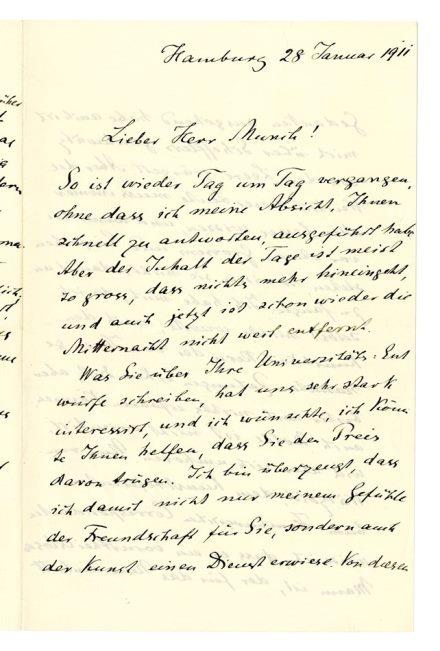 Hamburg 28 Januar 1911
Lieber Herr Munch!
So ist wieder Tag um Tag vergangen,
ohne dass ich meine Absicht, Ihnen
schnell zu antworten, ausgeführt habe.
Aber der Inhalt der Tage ist meist
so gross, dass nichts mehr hineingeht,
und auch jetzt ist schon wieder die
Mitternacht nicht weit entfernt.
Was Sie über Ihre Universitäts-Ent
würfe schreiben, hat uns sehr stark
interessirt, und ich wünschte, ich könn
te Ihnen helfen, dass Sie den Preis
davon trügen. Ich bin überzeugt, dass
ich damit nicht nur meinem Gefühle
der Freundschaft für Sie, sondern auch
der Kunst einen Dienst erwiese. Von diesen